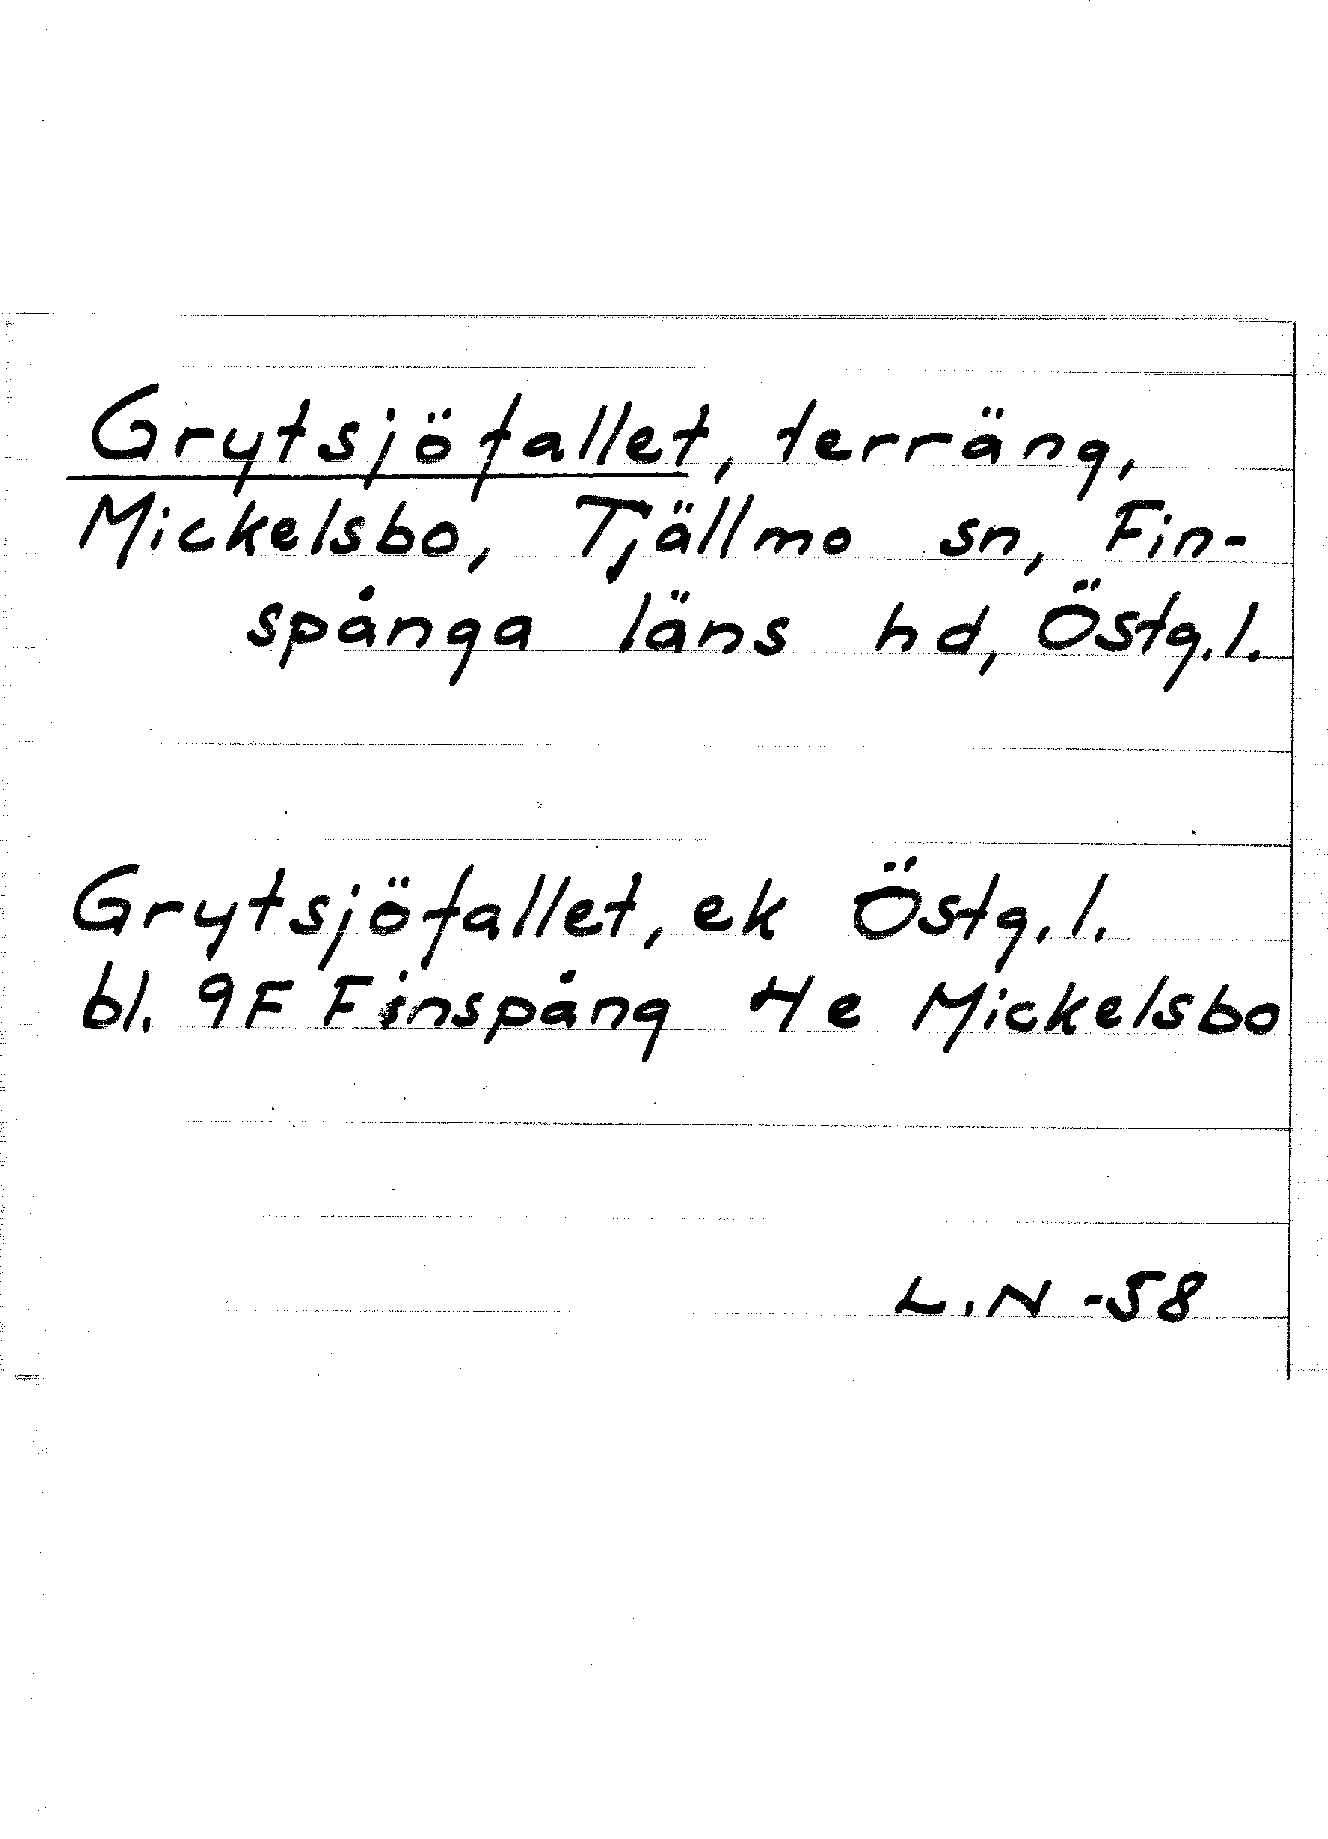 Grytsjöfallet, terräng,
Mickelsbo, Tjällmo sn, Fin-
spånga läns hd, Östg.l.
Grytsjöfallet, ek Östg.l.
bl. 9F Finspång 4e Mickelsbo
L.N -58